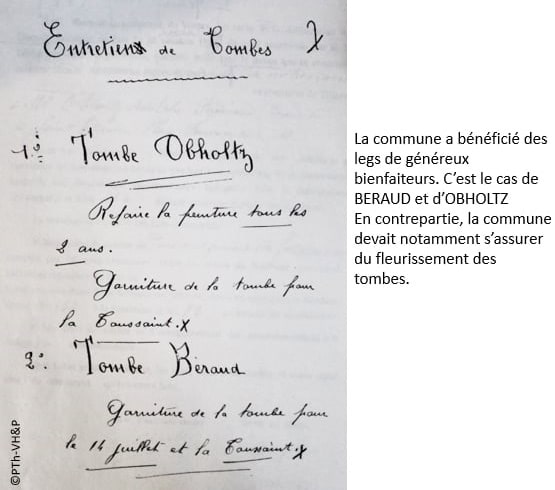 Entretiens de Tombes X
1º: Tombe Obholtz
Refaire la peinture tous les
2 ans.
Garniture de la tombe pour
la Toussaint. X
2º: Tombe Béraud
Garniture de la tombe pour
le 14 juillet et la Toussaint. X
©PTh-VH&P
La commune a bénéficié des
legs de généreux
bienfaiteurs. C’est le cas de
BERAUD et d’OBHOLTZ
En contrepartie, la commune
devait notamment s’assurer
du fleurissement des
tombes.